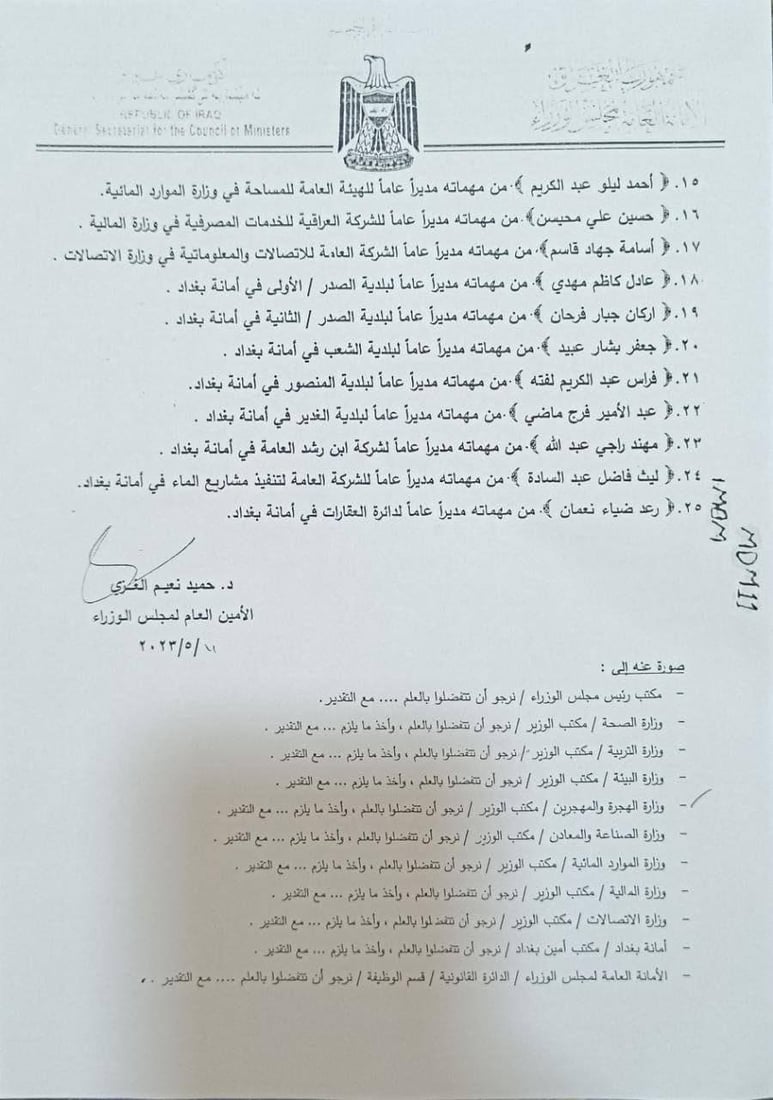 جمهورية العراق
الأمانة العامة لمجلس الوزراء
REPUBLIC OF IRAQ
General Secretariat for the Council of Ministers
١٥. ﴿ أحمد ليلو عبد الكريم ﴾ من مهماته مديراً عاماً للهيئة العامة للمساحة في وزارة الموارد المائية.
١٦. ﴿ حسين علي محيسن﴾ من مهماته مديراً عاماً للشركة العراقية للخدمات المصرفية في وزارة المالية .
١٧. ﴿ أسامة جهاد قاسم﴾ من مهماته مديراً عاماً الشركة العامة للاتصالات والمعلوماتية في وزارة الاتصالات .
١٨. ﴿ عادل كاظم مهدي ﴾ من مهماته مديراً عاماً لبلدية الصدر / الأولى في أمانة بغداد .
١٩. ﴿ اركان جبار فرحان ﴾ من مهماته مديراً عاماً لبلدية الصدر / الثانية في أمانة بغداد .
٢٠. ﴿ جعفر بشار عبيد ﴾ من مهماته مديراً عاماً لبلدية الشعب في أمانة بغداد .
٢١. ﴿ فراس عبد الكريم لفته ﴾ من مهماته مديراً عاماً لبلدية المنصور في أمانة بغداد.
٢٢. ﴿ عبد الأمير فرج ماضي ﴾ من مهماته مديراً عاماً لبلدية الغدير في أمانة بغداد .
٢٣. ﴿ مهند راجي عبد الله ﴾ من مهماته مديراً عاماً لشركة ابن رشد العامة في أمانة بغداد .
٢٤. ﴿ ليث فاضل عبد السادة ﴾ من مهماته مديراً عاماً للشركة العامة لتنفيذ مشاريع الماء في أمانة بغداد.
٢٥. ﴿ رعد ضياء نعمان ﴾ من مهماته مديراً عاماً لدائرة العقارات في أمانة بغداد.
د. حميد نعيم الغزي
الأمين العام لمجلس الوزراء
٢٠٢٣/٥/١١
صورة عنه إلى :
- مكتب رئيس مجلس الوزراء / نرجو أن تتفضلوا بالعلم .... مع التقدير .
- وزارة الصحة / مكتب الوزير / نرجو أن تتفضلوا بالعلم ، وأخذ ما يلزم ... مع التقدير .
- وزارة التربية / مكتب الوزير / نرجو أن تتفضلوا بالعلم ، وأخذ ما يلزم ... مع التقدير .
- وزارة البيئة / مكتب الوزير / نرجو أن تتفضلوا بالعلم ، وأخذ ما يلزم ... مع التقدير .
- وزارة الهجرة والمهجرين / مكتب الوزير / نرجو أن تتفضلوا بالعلم ، وأخذ ما يلزم ... مع التقدير .
- وزارة الصناعة والمعادن / مكتب الوزير / نرجو أن تتفضلوا بالعلم ، وأخذ ما يلزم ... مع التقدير .
- وزارة الموارد المائية / مكتب الوزير / نرجو أن تتفضلوا بالعلم ، وأخذ ما يلزم ... مع التقدير .
- وزارة المالية / مكتب الوزير / نرجو أن تتفضلوا بالعلم ، وأخذ ما يلزم ... مع التقدير .
- وزارة الاتصالات / مكتب الوزير / نرجو أن تتفضلوا بالعلم ، وأخذ ما يلزم ... مع التقدير .
- أمانة بغداد / مكتب أمين بغداد / نرجو أن تتفضلوا بالعلم ، وأخذ ما يلزم ... مع التقدير .
- الأمانة العامة لمجلس الوزراء / الدائرة القانونية / قسم الوظيفة / نرجو أن تتفضلوا بالعلم .... مع التقدير .